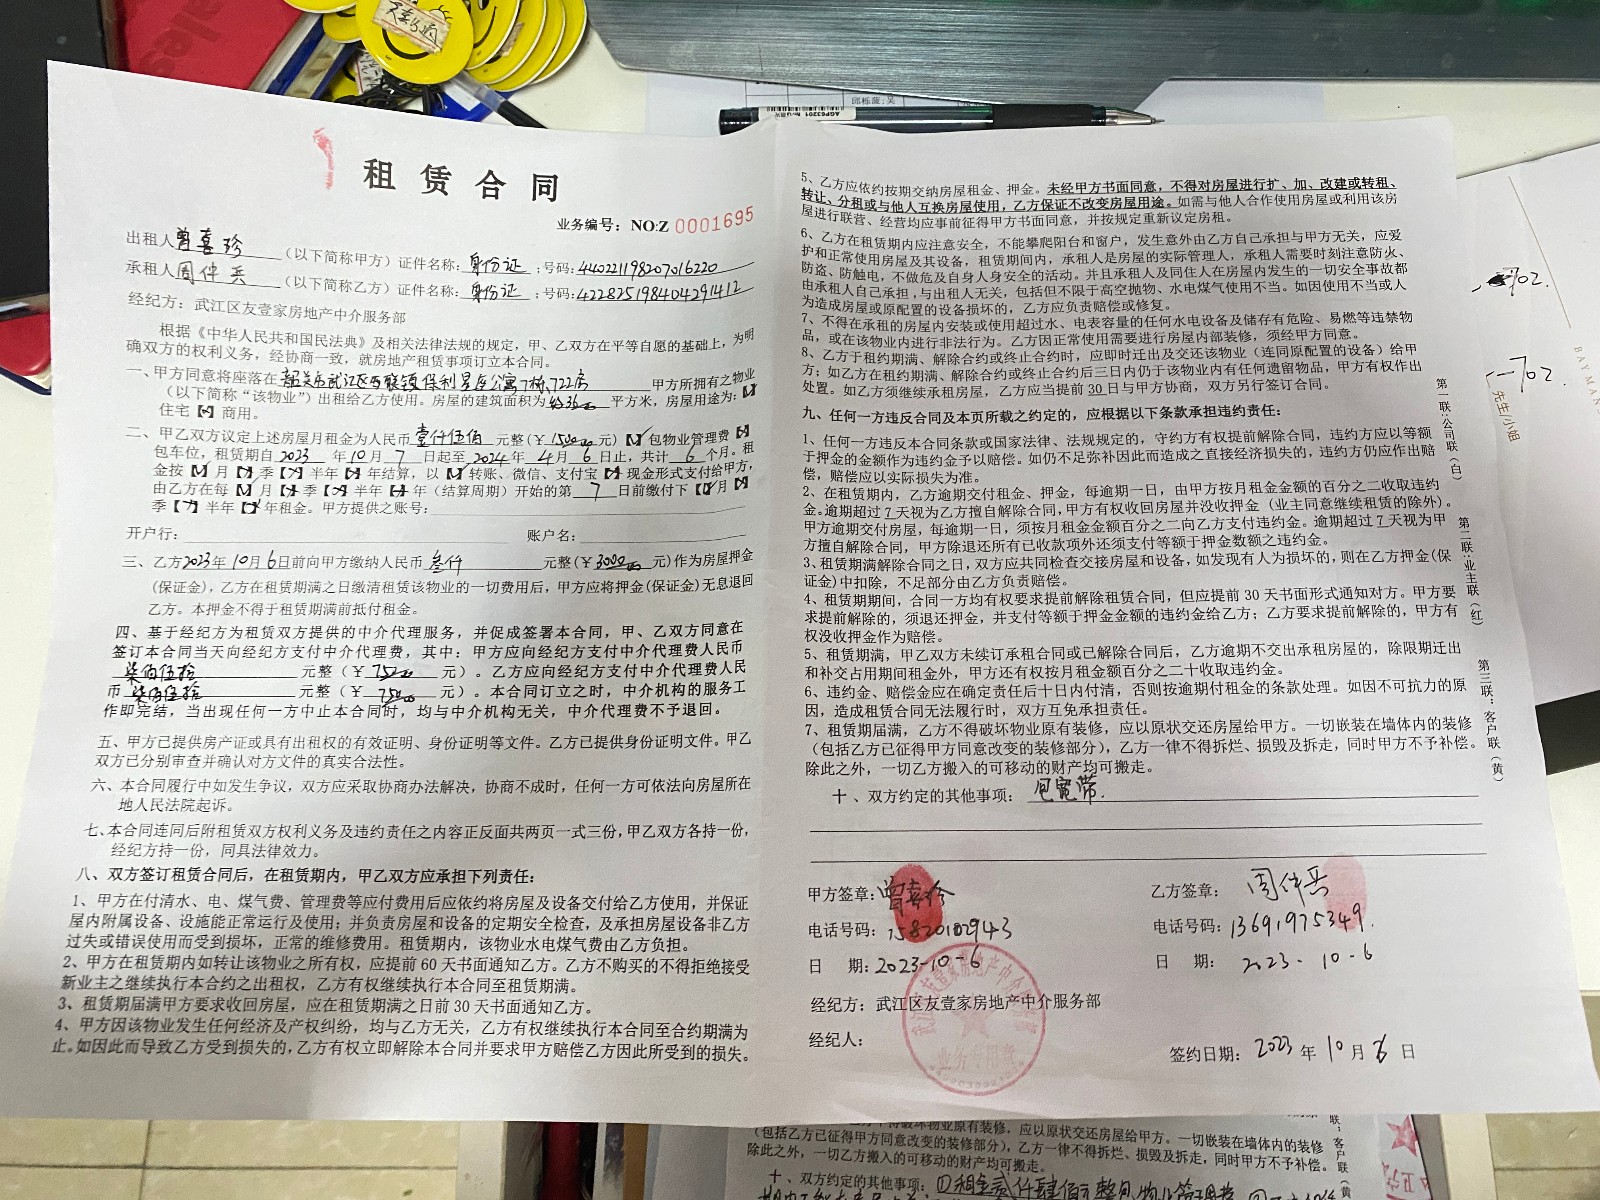 租赁合同
业务编号：NO:Z 0001695
出租人曾喜珍（以下简称甲方）证件名称：身份证；号码：440221198207016220
承租人周仲兵（以下简称乙方）证件名称：身份证；号码：422825198404291412
经纪方：武江区友壹家房地产中介服务部
根据《中华人民共和国民法典》及相关法律法规的规定，甲、乙双方在平等自愿的基础上，为明
确双方的权利义务，经协商一致，就房地产租赁事项订立本合同。
一、甲方同意将座落在韶关市武江区西联镇保利星座公寓7栋722房甲方所拥有之物业
（以下简称“该物业”）出租给乙方使用。房屋的建筑面积为约36平方米，房屋用途为：【】
住宅【】商用。
二、甲乙双方议定上述房屋月租金为人民币壹仟伍佰元整(￥1500.00元)【】包物业管理费【】
包车位，租赁期自2023年10月7日起至2024年4月6日止，共计6个月。租
金按【】月【】季【】半年【】年结算，以【】转账、微信、支付宝【】现金形式支付给甲方，
由乙方在每【】月【】季【】半年【】年（结算周期）开始的第7日前缴付下【】月【】
季【】半年【】年租金。甲方提供之账号：
开户行：账户名：
三、乙方2023年10月6日前向甲方缴纳人民币叁仟元整(￥3000.00元)作为房屋押金
(保证金)，乙方在租赁期满之日缴清租赁该物业的一切费用后，甲方应将押金(保证金)无息退回
乙方。本押金不得于租赁期满前抵付租金。
四、基于经纪方为租赁双方提供的中介代理服务，并促成签署本合同，甲、乙双方同意在
签订本合同当天向经纪方支付中介代理费，其中：甲方应向经纪方支付中介代理费人民币
柒佰伍拾元整（￥750.00元）。乙方应向经纪方支付中介代理费人民
币柒佰伍拾元整（￥750.00元）。本合同订立之时，中介机构的服务工
作即完结，当出现任何一方中止本合同时，均与中介机构无关，中介代理费不予退回。
五、甲方已提供房产证或具有出租权的有效证明、身份证明等文件。乙方已提供身份证明文件。甲乙
双方已分别审查并确认对方文件的真实合法性。
六、本合同履行中如发生争议，双方应采取协商办法解决，协商不成时，任何一方可依法向房屋所在
地人民法院起诉。
七、本合同连同后附租赁双方权利义务及违约责任之内容正反面共两页一式三份，甲乙双方各持一份，
经纪方持一份，同具法律效力。
八、双方签订租赁合同后，在租赁期内，甲乙双方应承担下列责任：
1、甲方在付清水、电、煤气费、管理费等应付费用后应依约将房屋及设备交付给乙方使用，并保证
屋内附属设备、设施能正常运行及使用；并负责房屋和设备的定期安全检查，及承担房屋设备非乙方
过失或错误使用而受到损坏，正常的维修费用。租赁期内，该物业水电煤气费由乙方负担。
2、甲方在租赁期内如转让该物业之所有权，应提前60天书面通知乙方。乙方不购买的不得拒绝接受
新业主之继续执行本合约之出租权，乙方有权继续执行本合同至租赁期满。
3、租赁期届满甲方要求收回房屋，应在租赁期满之日前30天书面通知乙方。
4、甲方因该物业发生任何经济及产权纠纷，均与乙方无关，乙方有权继续执行本合同至合约期满为
止。如因此而导致乙方受到损失的，乙方有权立即解除本合同并要求甲方赔偿乙方因此所受到的损失。
5、乙方应依约按期交纳房屋租金、押金。未经甲方书面同意，不得对房屋进行扩、加、改建或转租、
转让、分租或与他人互换房屋使用，乙方保证不改变房屋用途。如需与他人合作使用房屋或利用该房
屋进行联营、经营均应事前征得甲方书面同意，并按规定重新议定房租。
6、乙方在租赁期内应注意安全，不能攀爬阳台和窗户，发生意外由乙方自己承担与甲方无关，应爱
护和正常使用房屋及其设备，租赁期间内，承租人是房屋的实际管理人，承租人需要时刻注意防火、
防盗、防触电，不做危及自身人身安全的活动。并且承租人及同住人在房屋内发生的一切安全事故都
由承租人自己承担，与出租人无关，包括但不限于高空抛物、水电煤气使用不当。如因使用不当或人
为造成房屋或原配置的设备损坏的，乙方应负责赔偿或修复。
7、不得在承租的房屋内安装或使用超过水、电表容量的任何水电设备及储存有危险、易燃等违禁物
品，或在该物业内进行非法行为。乙方因正常使用需要进行房屋内部装修，须经甲方同意。
8、乙方于租约期满、解除合约或终止合约时，应即时迁出及交还该物业（连同原配置的设备）给甲
方；如乙方在租约期满、解除合约或终止合约后三日内仍于该物业内有任何遗留物品，甲方有权作出
处置。如乙方须继续承租房屋，乙方应当提前30日与甲方协商，双方另行签订合同。
九、任何一方违反合同及本页所载之约定的，应根据以下条款承担违约责任：
1、任何一方违反本合同条款或国家法律、法规规定的，守约方有权提前解除合同，违约方应以等额
于押金的金额作为违约金予以赔偿。如仍不足弥补因此而造成之直接经济损失的，违约方仍应作出赔
偿，赔偿应以实际损失为准。
2、在租赁期内，乙方逾期交付租金、押金，每逾期一日，由甲方按月租金金额的百分之二收取违约
金。逾期超过7天视为乙方擅自解除合同，甲方有权收回房屋并没收押金（业主同意继续租赁的除外）。
甲方逾期交付房屋，每逾期一日，须按月租金金额百分之二向乙方支付违约金。逾期超过7天视为甲
方擅自解除合同，甲方除退还所有已收款项外还须支付等额于押金数额之违约金。
3、租赁期满解除合同之日，双方应共同检查交接房屋和设备，如发现有人为损坏的，则在乙方押金(保
证金)中扣除，不足部分由乙方负责赔偿。
4、租赁期期间，合同一方均有权要求提前解除租赁合同，但应提前30天书面形式通知对方。甲方要
求提前解除的，须退还押金，并支付等额于押金金额的违约金给乙方；乙方要求提前解除的，甲方有
权没收押金作为赔偿。
5、租赁期满，甲乙双方未续订承租合同或已解除合同后，乙方逾期不交出承租房屋的，除限期迁出
和补交占用期间租金外，甲方还有权按月租金额百分之二十收取违约金。
6、违约金、赔偿金应在确定责任后十日内付清，否则按逾期付租金的条款处理。如因不可抗力的原
因，造成租赁合同无法履行时，双方互免承担责任。
7、租赁期届满，乙方不得破坏物业原有装修，应以原状交还房屋给甲方。一切嵌装在墙体内的装修
（包括乙方已征得甲方同意改变的装修部分），乙方一律不得拆烂、损毁及拆走，同时甲方不予补偿。
除此之外，一切乙方搬入的可移动的财产均可搬走。
十、双方约定的其他事项：包宽带.
甲方签章：曾喜珍
电话号码：15820102943
日期：2023-10-6
经纪方：武江区友壹家房地产中介服务部
经纪人：
乙方签章：周仲兵
电话号码：13691975349.
日期：2023-10-6
签约日期：2023年10月6日
业务专用章
第一联：公司联（白）
第二联：业主联（红）
第三联：客户联（黄）
702.
702.
先生/小姐
BAYMAN
AGP63201
（包括乙方已征得甲方同意改变的装修部分），乙方一律不得拆烂、损毁及拆走，同时甲方不予补偿。
除此之外，一切乙方搬入的可移动的财产均可搬走。
十、双方约定的其他事项：
客户联（黄